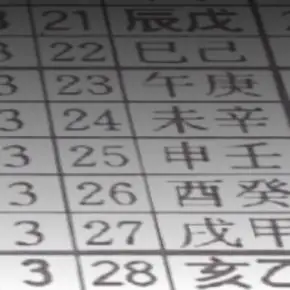 3 21 辰戊
3 22 巳己
3 23 午庚
3 24 未辛
3 25 申壬
3 26 酉癸
3 27 戌甲
3 28 亥乙